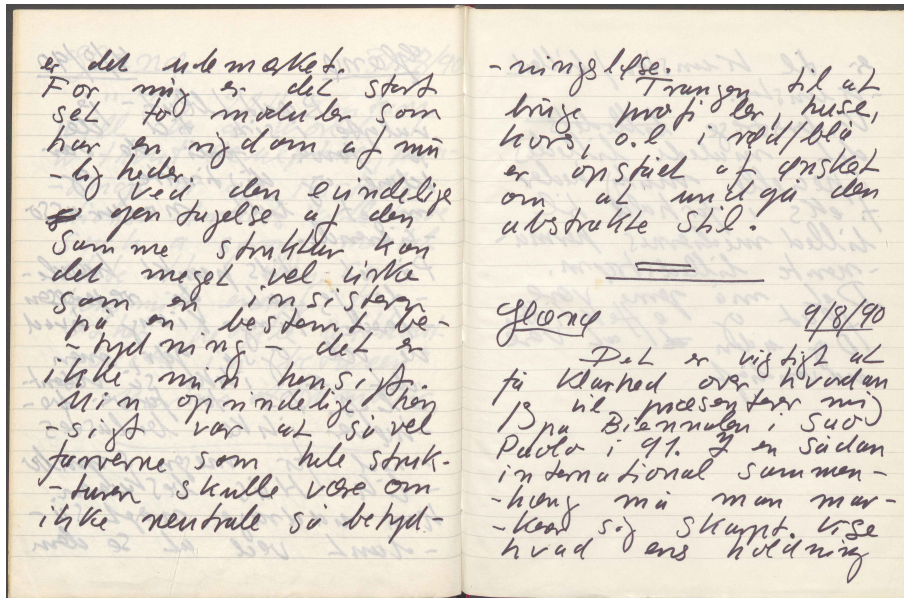 er det udemærket.
For mig er det stort
set to moduler som
har en rigdom af mu
-ligheder.
Ved den endelige
gentagelse af den
samme struktur kan
det meget vel virke
som en insisteren
på en bestemt be-
-tydning - det er
ikke min hensigt.
Min oprindelige hen
-sigt var at såvel
farverne som hele struk-
-turen skulle være om
ikke neutrale så betyd-
-ningsløse.
Trangen til at
bruge profiler, huse,
kors, o.l i rød/blå
er opstået af ønsket
om at undgå den
abstrakte stil.
9/8/90
Det er vigtigt at
få klarhed over, hvordan
jeg vil præsenterer mig
på Biennalen i Sao
Paolo i 91. I en sådan
international sammen-
-hæng må man mar-
-kere sig skarpt. Vise
hvad ens holdning